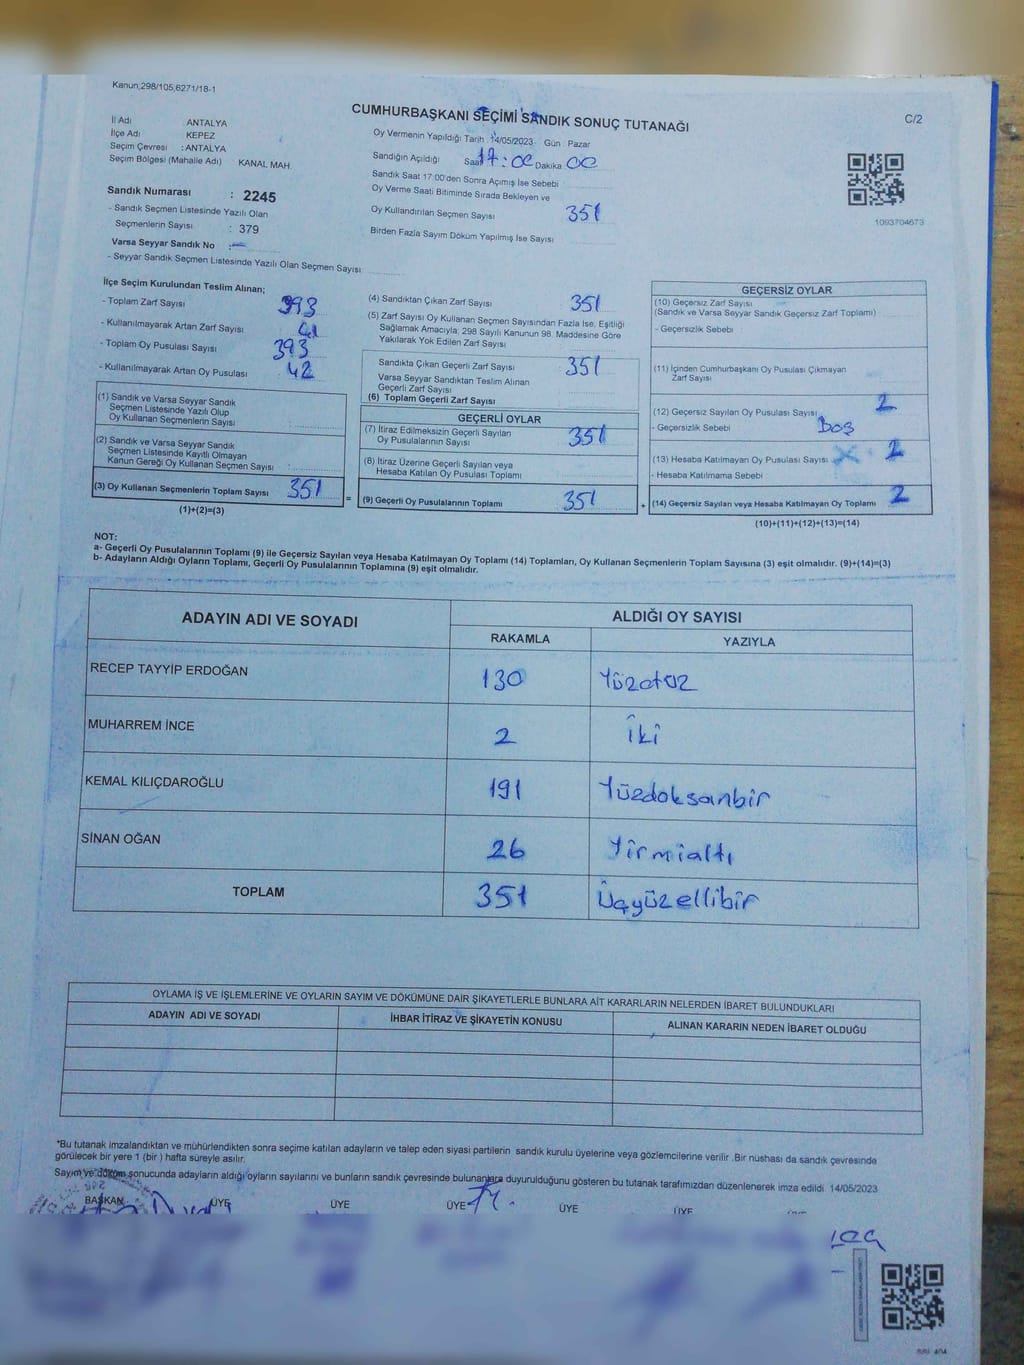 Kanun;298/105,6271/18-1
CUMHURBAŞKANI SEÇİMİ SANDIK SONUÇ TUTANAĞI
C/2
İl Adı ANTALYA
İlçe Adı KEPEZ
Seçim Çevresi : ANTALYA
Seçim Bölgesi (Mahalle Adı) KANAL MAH.
Sandık Numarası : 2245
- Sandık Seçmen Listesinde Yazılı Olan
Seçmenlerin Sayısı : 379
Varsa Seyyar Sandık No : -
- Seyyar Sandık Seçmen Listesinde Yazılı Olan Seçmen Sayısı
Oy Vermenin Yapıldığı Tarih : 14/05/2023 Gün Pazar
Sandığın Açıldığı Saat 17:00 Dakika 00
Sandık Saat 17:00'den Sonra Açımış İse Sebebi
Oy Verme Saati Bitiminde Sırada Bekleyen ve
Oy Kullandırılan Seçmen Sayısı 351
Birden Fazla Sayım Döküm Yapılmış İse Sayısı
1093704673
İlçe Seçim Kurulundan Teslim Alınan;
- Toplam Zarf Sayısı 393
- Kullanılmayarak Artan Zarf Sayısı 41
- Toplam Oy Pusulası Sayısı 393
- Kullanılmayarak Artan Oy Pusulası 42
(1) Sandık ve Varsa Seyyar Sandık
Seçmen Listesinde Yazılı Olup
Oy Kullanan Seçmenlerin Sayısı
(2) Sandık ve Varsa Seyyar Sandık
Seçmen Listesinde Kayıtlı Olmayan
Kanun Gereği Oy Kullanan Seçmen Sayısı :
(3) Oy Kullanan Seçmenlerin Toplam Sayısı 351
(1)+(2)=(3)
(4) Sandıktan Çıkan Zarf Sayısı 351
(5) Zarf Sayısı Oy Kullanan Seçmen Sayısından Fazla İse, Eşitliği
Sağlamak Amacıyla; 298 Sayılı Kanunun 98. Maddesine Göre
Yakılarak Yok Edilen Zarf Sayısı
Sandıkta Çıkan Geçerli Zarf Sayısı 351
Varsa Seyyar Sandıktan Teslim Alınan
Geçerli Zarf Sayısı
(6) Toplam Geçerli Zarf Sayısı
GEÇERLİ OYLAR
(7) İtiraz Edilmeksizin Geçerli Sayılan
Oy Pusulalarının Sayısı 351
(8) İtiraz Üzerine Geçerli Sayılan veya
Hesaba Katılan Oy Pusulası Toplamı
= (9) Geçerli Oy Pusulalarının Toplamı 351
GEÇERSİZ OYLAR
(10) Geçersiz Zarf Sayısı
(Sandık ve Varsa Seyyar Sandık Geçersiz Zarf Toplamı)
- Geçersizlik Sebebi
(11) İçinden Cumhurbaşkanı Oy Pusulası Çıkmayan
Zarf Sayısı
(12) Geçersiz Sayılan Oy Pusulası Sayısı 2
- Geçersizlik Sebebi Boş
(13) Hesaba Katılmayan Oy Pusulası Sayısı 2
- Hesaba Katılmama Sebebi
+ (14) Geçersiz Sayılan veya Hesaba Katılmayan Oy Toplamı 2
(10)+(11)+(12)+(13)=(14)
NOT:
a- Geçerli Oy Pusulalarının Toplamı (9) ile Geçersiz Sayılan veya Hesaba Katılmayan Oy Toplamı (14) Toplamları, Oy Kullanan Seçmenlerin Toplam Sayısına (3) eşit olmalıdır. (9)+(14)=(3)
b- Adayların Aldığı Oyların Toplamı, Geçerli Oy Pusulalarının Toplamına (9) eşit olmalıdır.
ADAYIN ADI VE SOYADI ALDIĞI OY SAYISI
RAKAMLA YAZIYLA
RECEP TAYYİP ERDOĞAN 130 Yüzotuz
MUHARREM İNCE 2 İki
KEMAL KILIÇDAROĞLU 191 Yüzdoksanbir
SİNAN OĞAN 26 Yirmialtı
TOPLAM 351 Üçyüzellibir
OYLAMA İŞ VE İŞLEMLERİNE VE OYLARIN SAYIM VE DÖKÜMÜNE DAİR ŞİKAYETLERLE BUNLARA AİT KARARLARIN NELERDEN İBARET BULUNDUKLARI
ADAYIN ADI VE SOYADI İHBAR İTİRAZ VE ŞİKAYETİN KONUSU ALINAN KARARIN NEDEN İBARET OLDUĞU
*Bu tutanak imzalandıktan ve mühürlendikten sonra seçime katılan adayların ve talep eden siyasi partilerin sandık kurulu üyelerine veya gözlemcilerine verilir .Bir nüshası da sandık çevresinde
görülecek bir yere 1 (bir ) hafta süreyle asılır.
Sayım ve döküm sonucunda adayların aldığı oyların sayılarını ve bunların sandık çevresinde bulunanlara duyurulduğunu gösteren bu tutanak tarafımızdan düzenlenerek imza edildi. 14/05/2023
BAŞKAN ÜYE ÜYE ÜYE ÜYE ÜYE